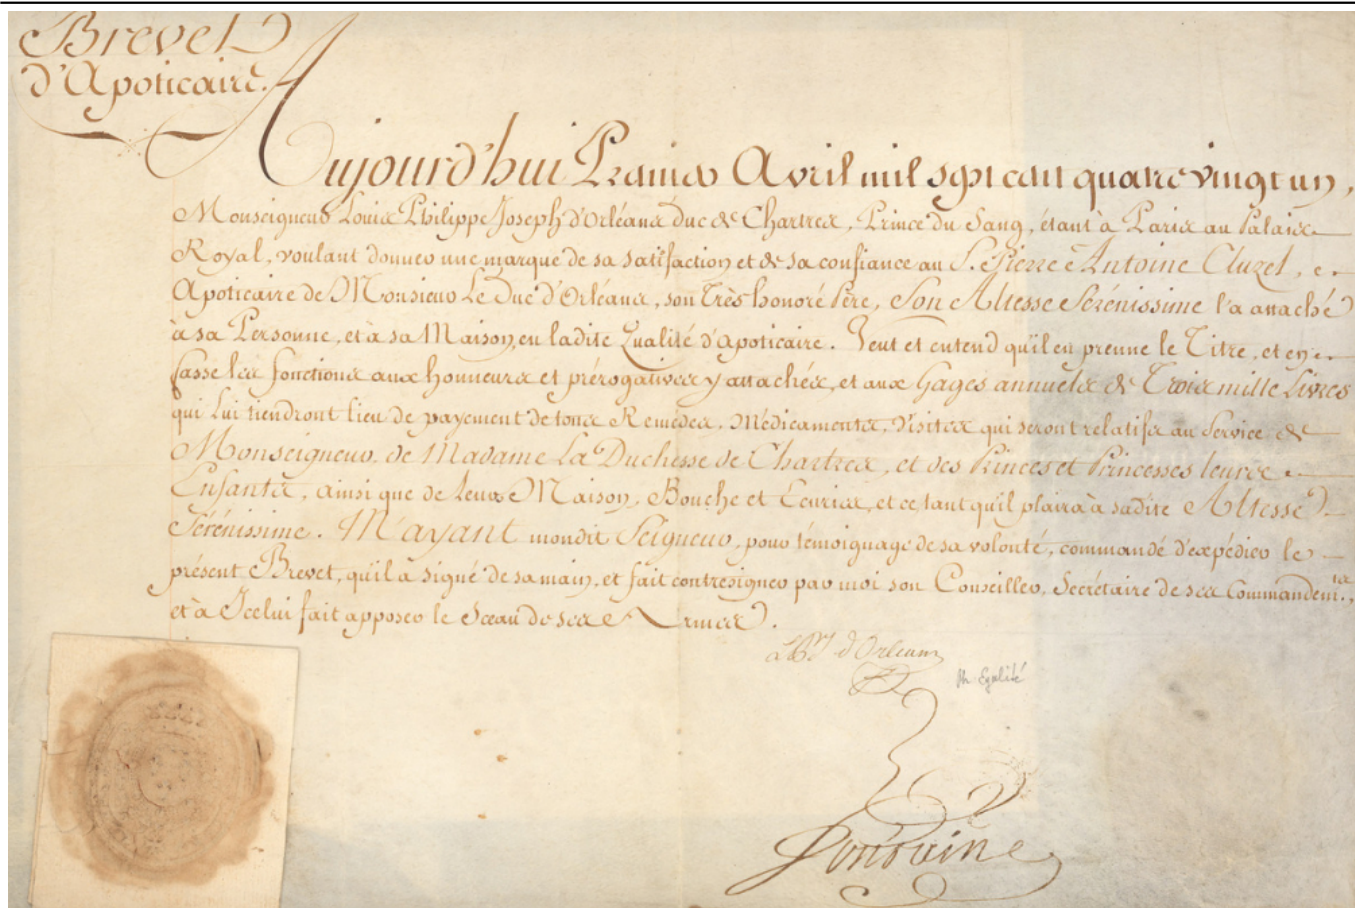 Brevet
d'Apoticaire.
Aujourd'hui Premier Avril mil sept cent quatre vingt un,
Monseigneur Louis Philippe Joseph d'Orléans duc de Chartres, Prince du Sang, étant à Paris au Palais
Royal, voulant donner une marque de sa satisfaction et de sa confiance au S. Pierre Antoine Cluzel,
Apoticaire de Monsieur Le Duc d'Orléans, son Très honoré Père, Son Altesse Sérénissime l'a attaché
à sa Personne, et à sa Maison, en ladite Qualité d'Apoticaire. Veut et entend qu'il en prenne le Titre, et en
fasse les fonctions aux honneurs et prérogatives y attachés, et aux Gages annuels de Trois mille Livres
qui lui tiendront lieu de payement de tous Remèdes, Médicaments, Visites qui seront relatifs au Service de
Monseigneur, de Madame La Duchesse de Chartres, et des Princes et Princesses leurs
Enfants, ainsi que de leurs Maison, Bouche et Ecuries, et ce tant qu'il plaira à sadite Altesse
Sérénissime. M'ayant mondit Seigneur, pour témoignage de sa volonté, commandé d'expédier le
présent Brevet, qu'il a signé de sa main, et fait contresigner par moi son Conseiller, Secrétaire de ses Commandem.ts,
et à Icelui fait apposer le Sceau de ses Armes.
L. P. J. d'Orleans
Ph. Egalité